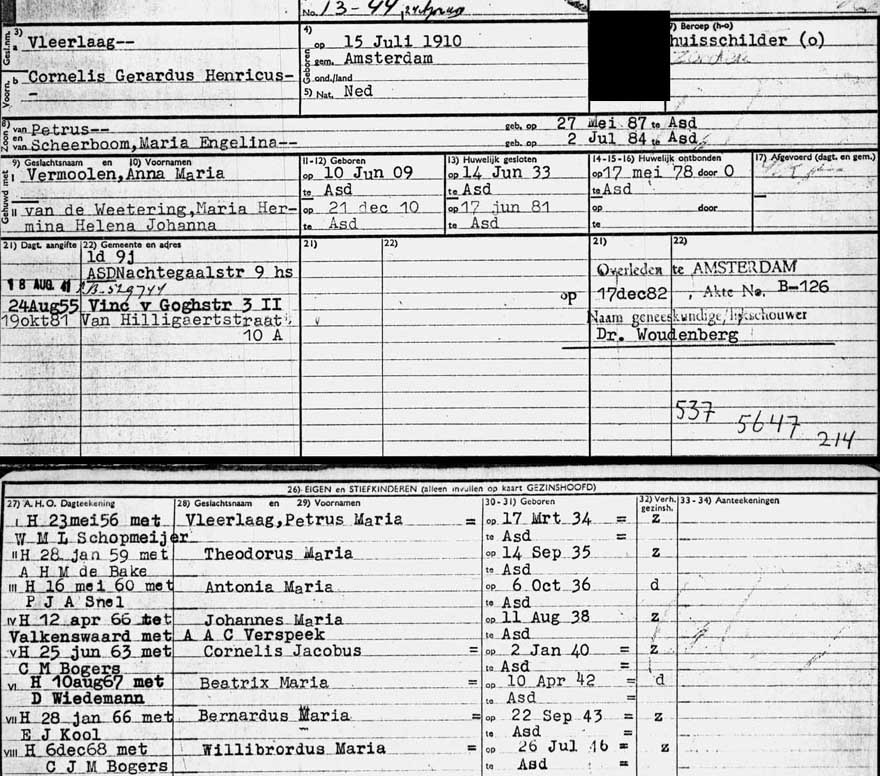 No. 13-44,
3) Vleerlaag--
Gesl.nm. a
Voorn. b Cornelis Gerardus Henricus-
-
4)
Geboren op 15 Juli 1910
gem. Amsterdam
ond./land
5) Nat. Ned
Beroep (h-o)
huisschilder (o)
Zoon van Petrus-- geb. op 27 Mei 87 te Asd
en van Scheerboom,Maria Engelina-- geb. op 2 Jul 84 te Asd
9) Geslachtsnaam en 10) Voornamen 11-12) Geboren 13) Huwelijk gesloten 14-15-16) Huwelijk ontbonden 17) Afgevoerd (dagt. en gem.)
Gehuwd met
I Vermoolen,Anna Maria op 10 Jun 09 op 14 Jun 33 op 17 mei 78 door O
te Asd te Asd te Asd
II van de Weetering,Maria Her- op 21 dec 10 op 17 jun 81 op door
mina Helena Johanna te Asd te Asd te
21) Dagt. aangifte 22) Gemeente en adres 21) 22) 21) 22)
ld 9j
ASDNachtegaalstr 9 hs
18 AUG. 41
24Aug55 Vinc v Goghstr 3 II
19okt81 Van Hilligaertstraat
10 A
Overleden te AMSTERDAM
op 17dec82, Akte No. B-126
Naam geneeskundige/lijkschouwer
Dr. Woudenberg
537 5647 214
26) EIGEN en STIEFKINDEREN (alleen invullen op kaart GEZINSHOOFD)
27) A.H.O. Dagteekening 28) Geslachtsnaam en 29) Voornamen 30-31) Geboren 32) Verh. gezinsh. 33-34) Aanteekeningen
I H 23mei56 met Vleerlaag,Petrus Maria = op 17 Mrt 34 = z
W M L Schopmeijer te Asd =
II H 28 jan 59 met Theodorus Maria op 14 Sep 35 z
A H M de Bake te Asd
III H 16 mei 60 met Antonia Maria op 6 Oct 36 d
P J A Snel te Asd
IV H 12 apr 66 tet Johannes Maria op 11 Aug 38 z
Valkenswaard met A A C Verspeek te Asd
V H 25 jun 63 met Cornelis Jacobus = op 2 Jan 40 = z
C M Bogers te Asd =
VI H 10aug67 met Beatrix Maria = op 10 Apr 42 = d
D Wiedemann te Asd =
VII H 28 jan 66 met Bernardus Maria = op 22 Sep 43 = z
E J Kool te Asd =
VIII H 6dec68 met Willibrordus Maria = op 26 Jul 46 = z
C J M Bogers te Asd =